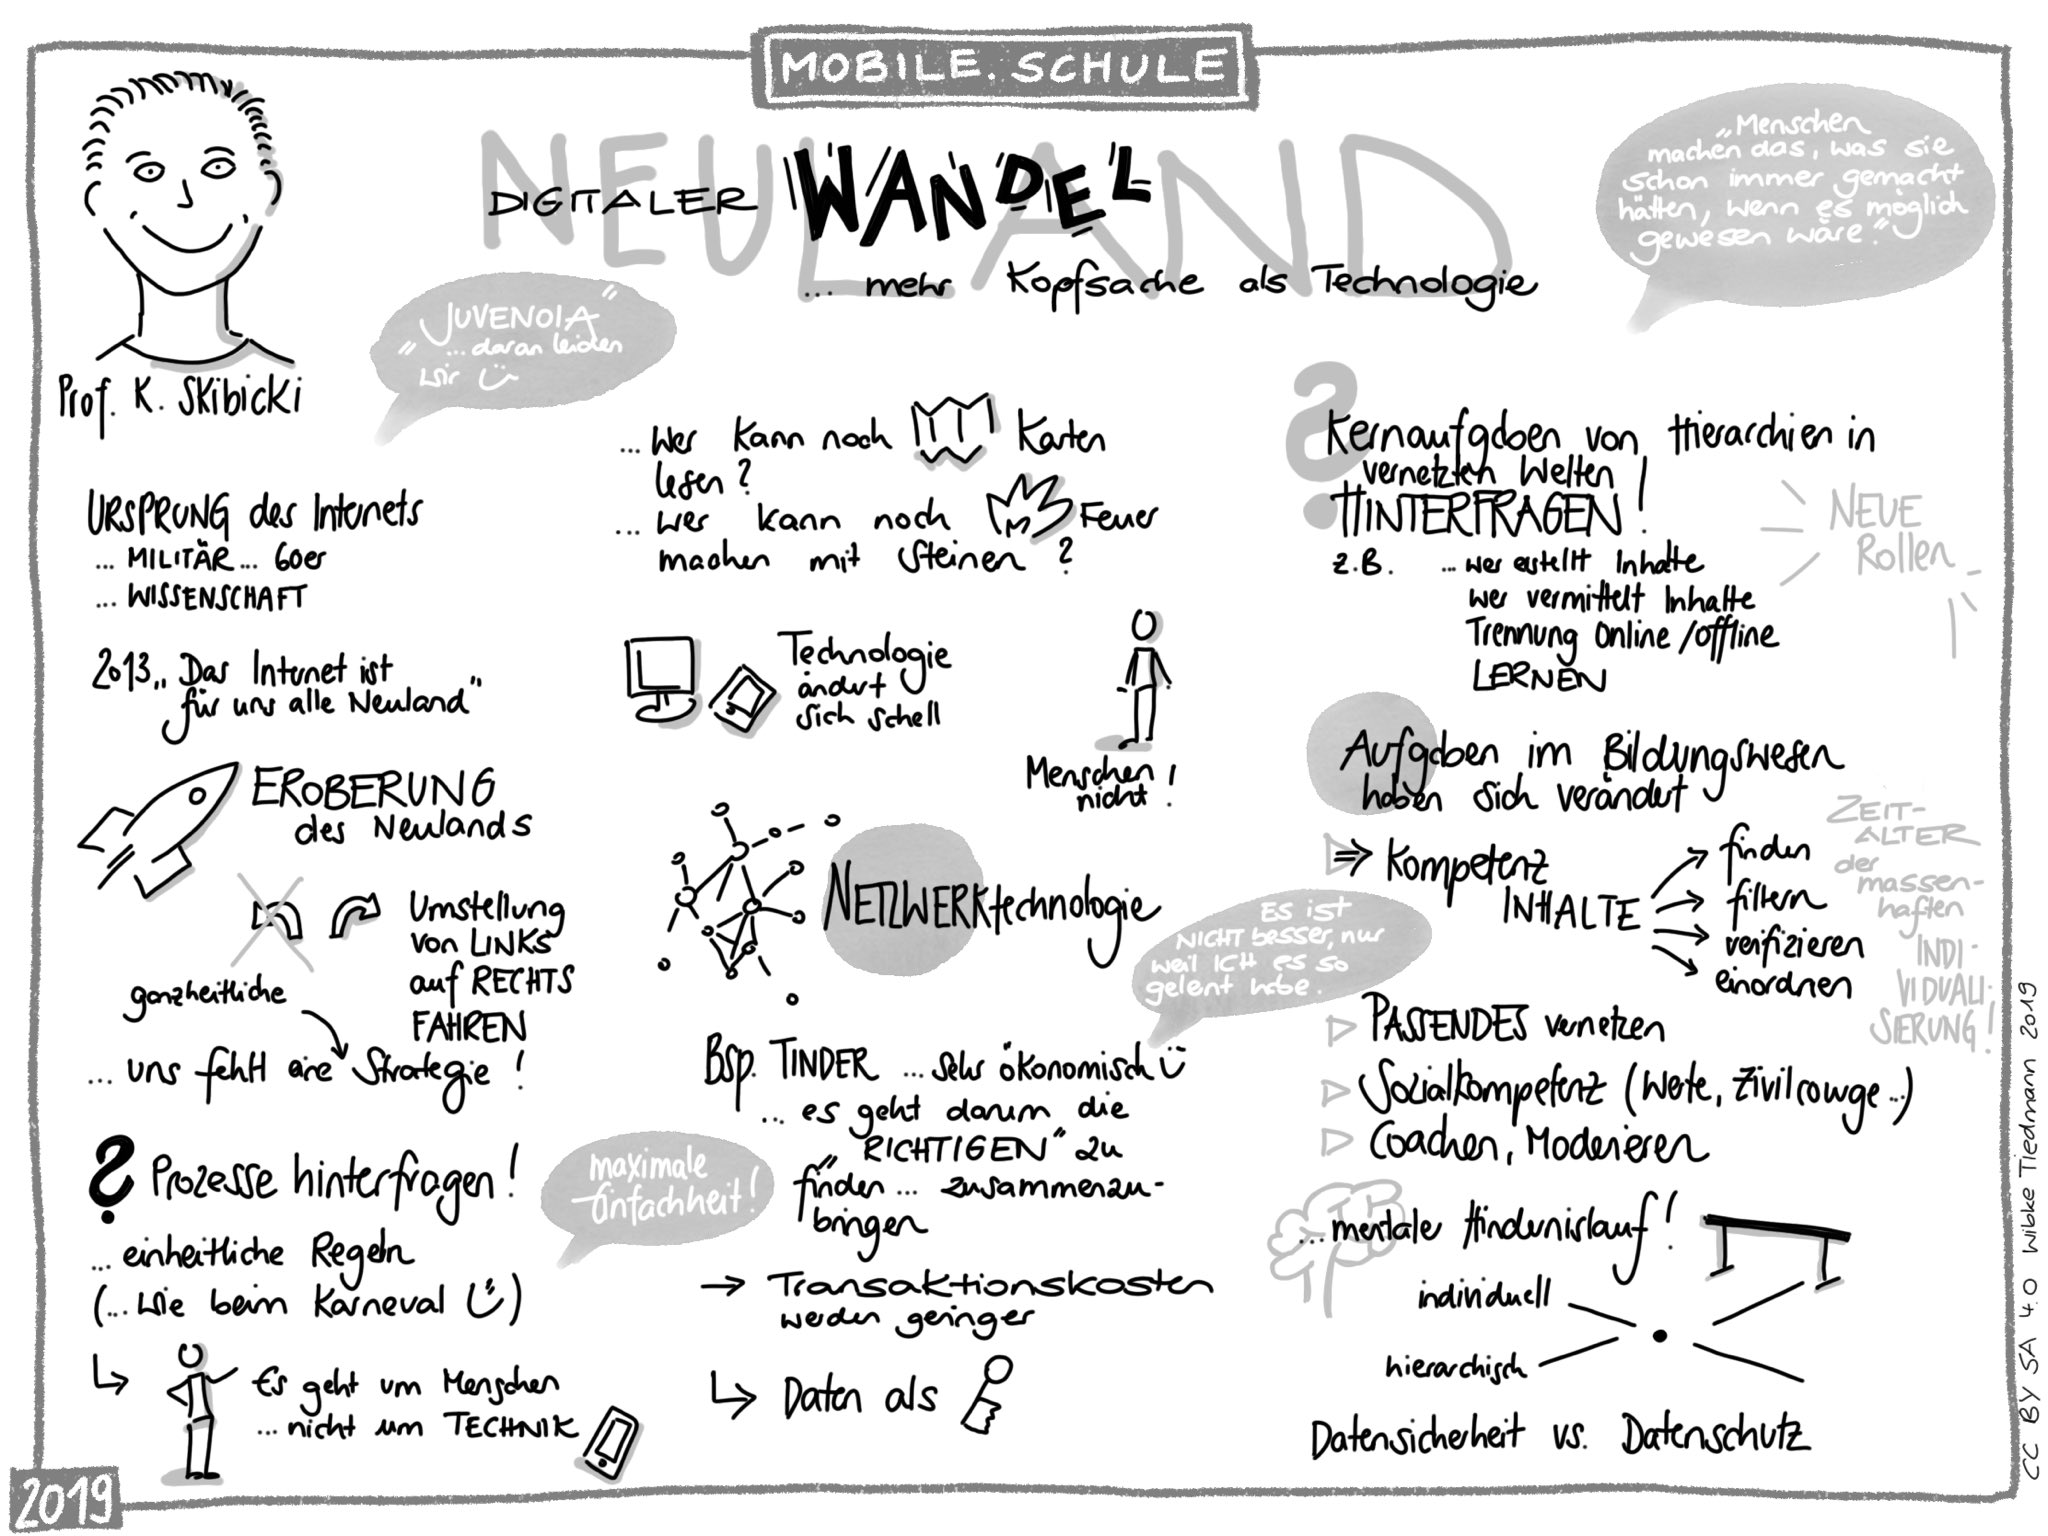 MOBILE.SCHULE
NEULAND
DIGITALER WANDEL
... mehr Kopfsache als Technologie
"Menschen
machen das, was sie
schon immer gemacht
hätten, wenn es möglich
gewesen wäre."
Prof. K. Skibicki
"JUVENOIA"
... daran leiden
wir
URSPRUNG des Internets
... MILITÄR ... 60er
... WISSENSCHAFT
2013 „Das Internet ist
für uns alle Neuland"
EROBERUNG
des Neulands
Umstellung
von LINKS
auf RECHTS
FAHREN
ganzheitliche
... uns fehlt eine Strategie!
? Prozesse hinterfragen!
... einheitliche Regeln
(... wie beim Karneval)
Es geht um Menschen
... nicht um TECHNIK
... wer kann noch Karten
lesen?
... wer kann noch Feuer
machen mit Steinen?
Technologie
ändert
sich schell
Menschen
nicht!
NETZWERKtechnologie
Es ist
NICHT besser, nur
weil ICH es so
gelent habe.
Bsp. TINDER ... sehr ökonomisch
... es geht darum die
„RICHTIGEN" zu
finden ... zusammenzu-
bringen
maximale
Einfachheit!
→ Transaktionskosten
werden geringer
Daten als
?
Kernaufgaben von Hierarchien in
vernetzten Welten
HINTERFRAGEN!
z.B. ... wer erstellt Inhalte
wer vermittelt Inhalte
Trennung Online/offline
LERNEN
NEUE
Rollen
Aufgaben im Bildungswesen
haben sich verändert
⇒ Kompetenz
INHALTE
finden
filtern
verifizieren
einordnen
ZEIT-
ALTER
der
massen-
haften
INDI-
VIDUALI-
SIERUNG!
PASSENDES vernetzen
Sozialkompetenz (Werte, Zivilcourage ...)
Coachen, Moderieren
... mentale Hindernislauf!
individuell
hierarchisch
Datensicherheit vs. Datenschutz
2019
CC BY SA 4.0 Wibke Tiedmann 2019